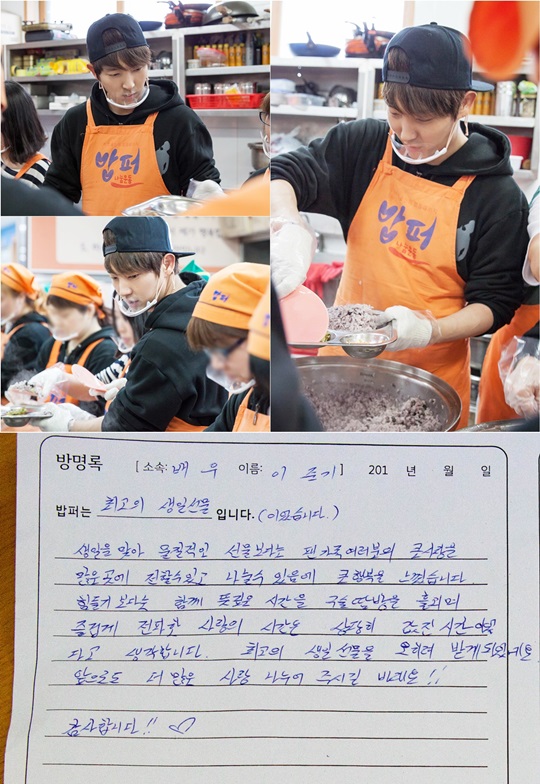 밥퍼
나눔운동
밥퍼
나눔운동
밥퍼
방명록 [ 소속: 배우 이름: 이 준기 ] 201 년 월 일
밥퍼는 최고의 생일선물 입니다. (이었습니다.)
생일을 맞아 물질적인 선물보다는 팬 가족여러분의 큰사랑을
많은곳에 전할수있고 나눌수 있음에 큰 행복을 느꼈습니다
힘들기 보다는 함께 뜻깊은 시간을 구슬땀방울을 흘리며
즐겁게 전파한 사랑의 시간은 상당히 값진 시간이었
다고 생각합니다. 최고의 생일 선물을 오히려 받게 되었네요
앞으로도 더 많은 사랑 나누어 주시길 바래요!!
감사합니다!! ♡